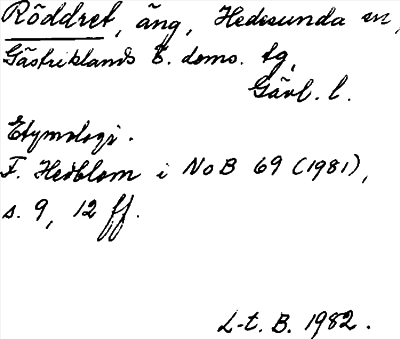 Röddret, äng, Hedesunda sn,
Gästriklands ö. doms. tg,
Gävl. l.
Etymologi.
F. Hedblom i NoB 69 (1981),
s. 9, 12 ff.
L-t. B. 1982.